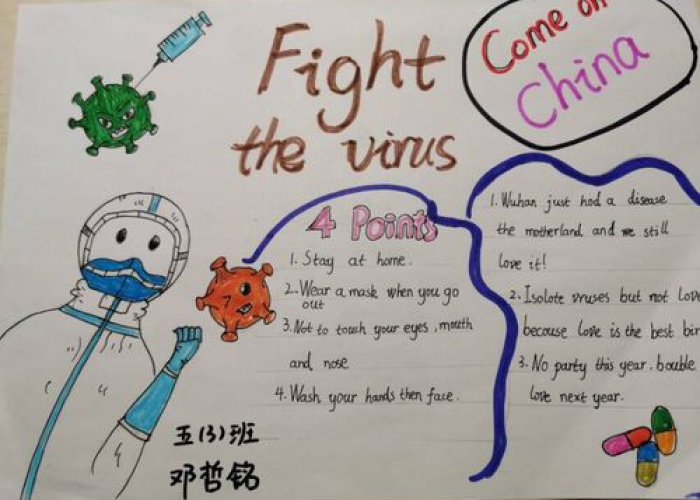 Fight
the virus
Come on
China
4 Points
1. Stay at home.
2. Wear a mask when you go
out
3. Not to touch your eyes, mouth
and nose
4. Wash your hands then face.
1. Wuhan just had a disease
the motherland and we still
love it!
2. Isolote vruses but not Love
becouse Love is the best bir
3. No party this year. bouble
love next year.
五(3)班
邓哲铭